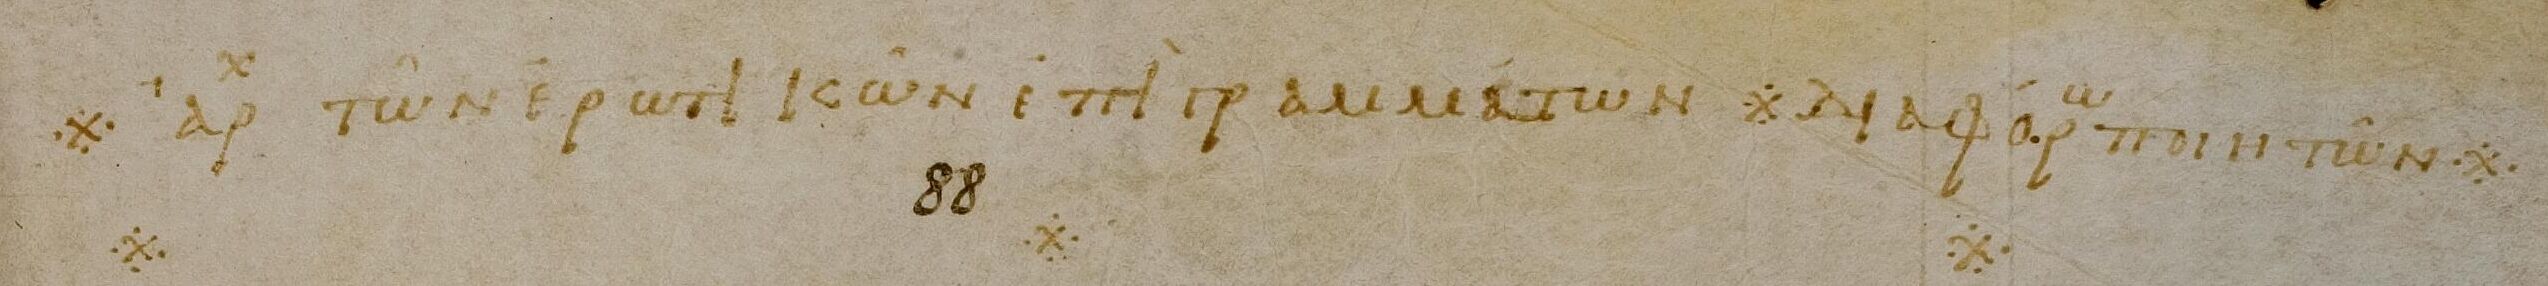 ※ ἀρχ τῶν ἐρωτικῶν ἐπιγραμμάτων ※ διαφόρω ποιητῶν ※
88
※ ※ ※